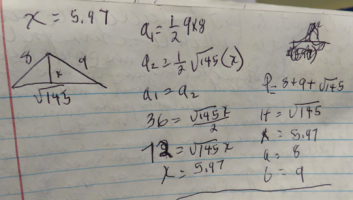 x = 5.97
8
9
x
√145
a₁ = 1/2 9x8
a₂ = 1/2 √145 (x)
a₁ = a₂
36 = √145 x / 2
72 = √145 x
x = 5.97
P = 8+9+√145
H = √145
x = 5.97
a = 8
b = 9